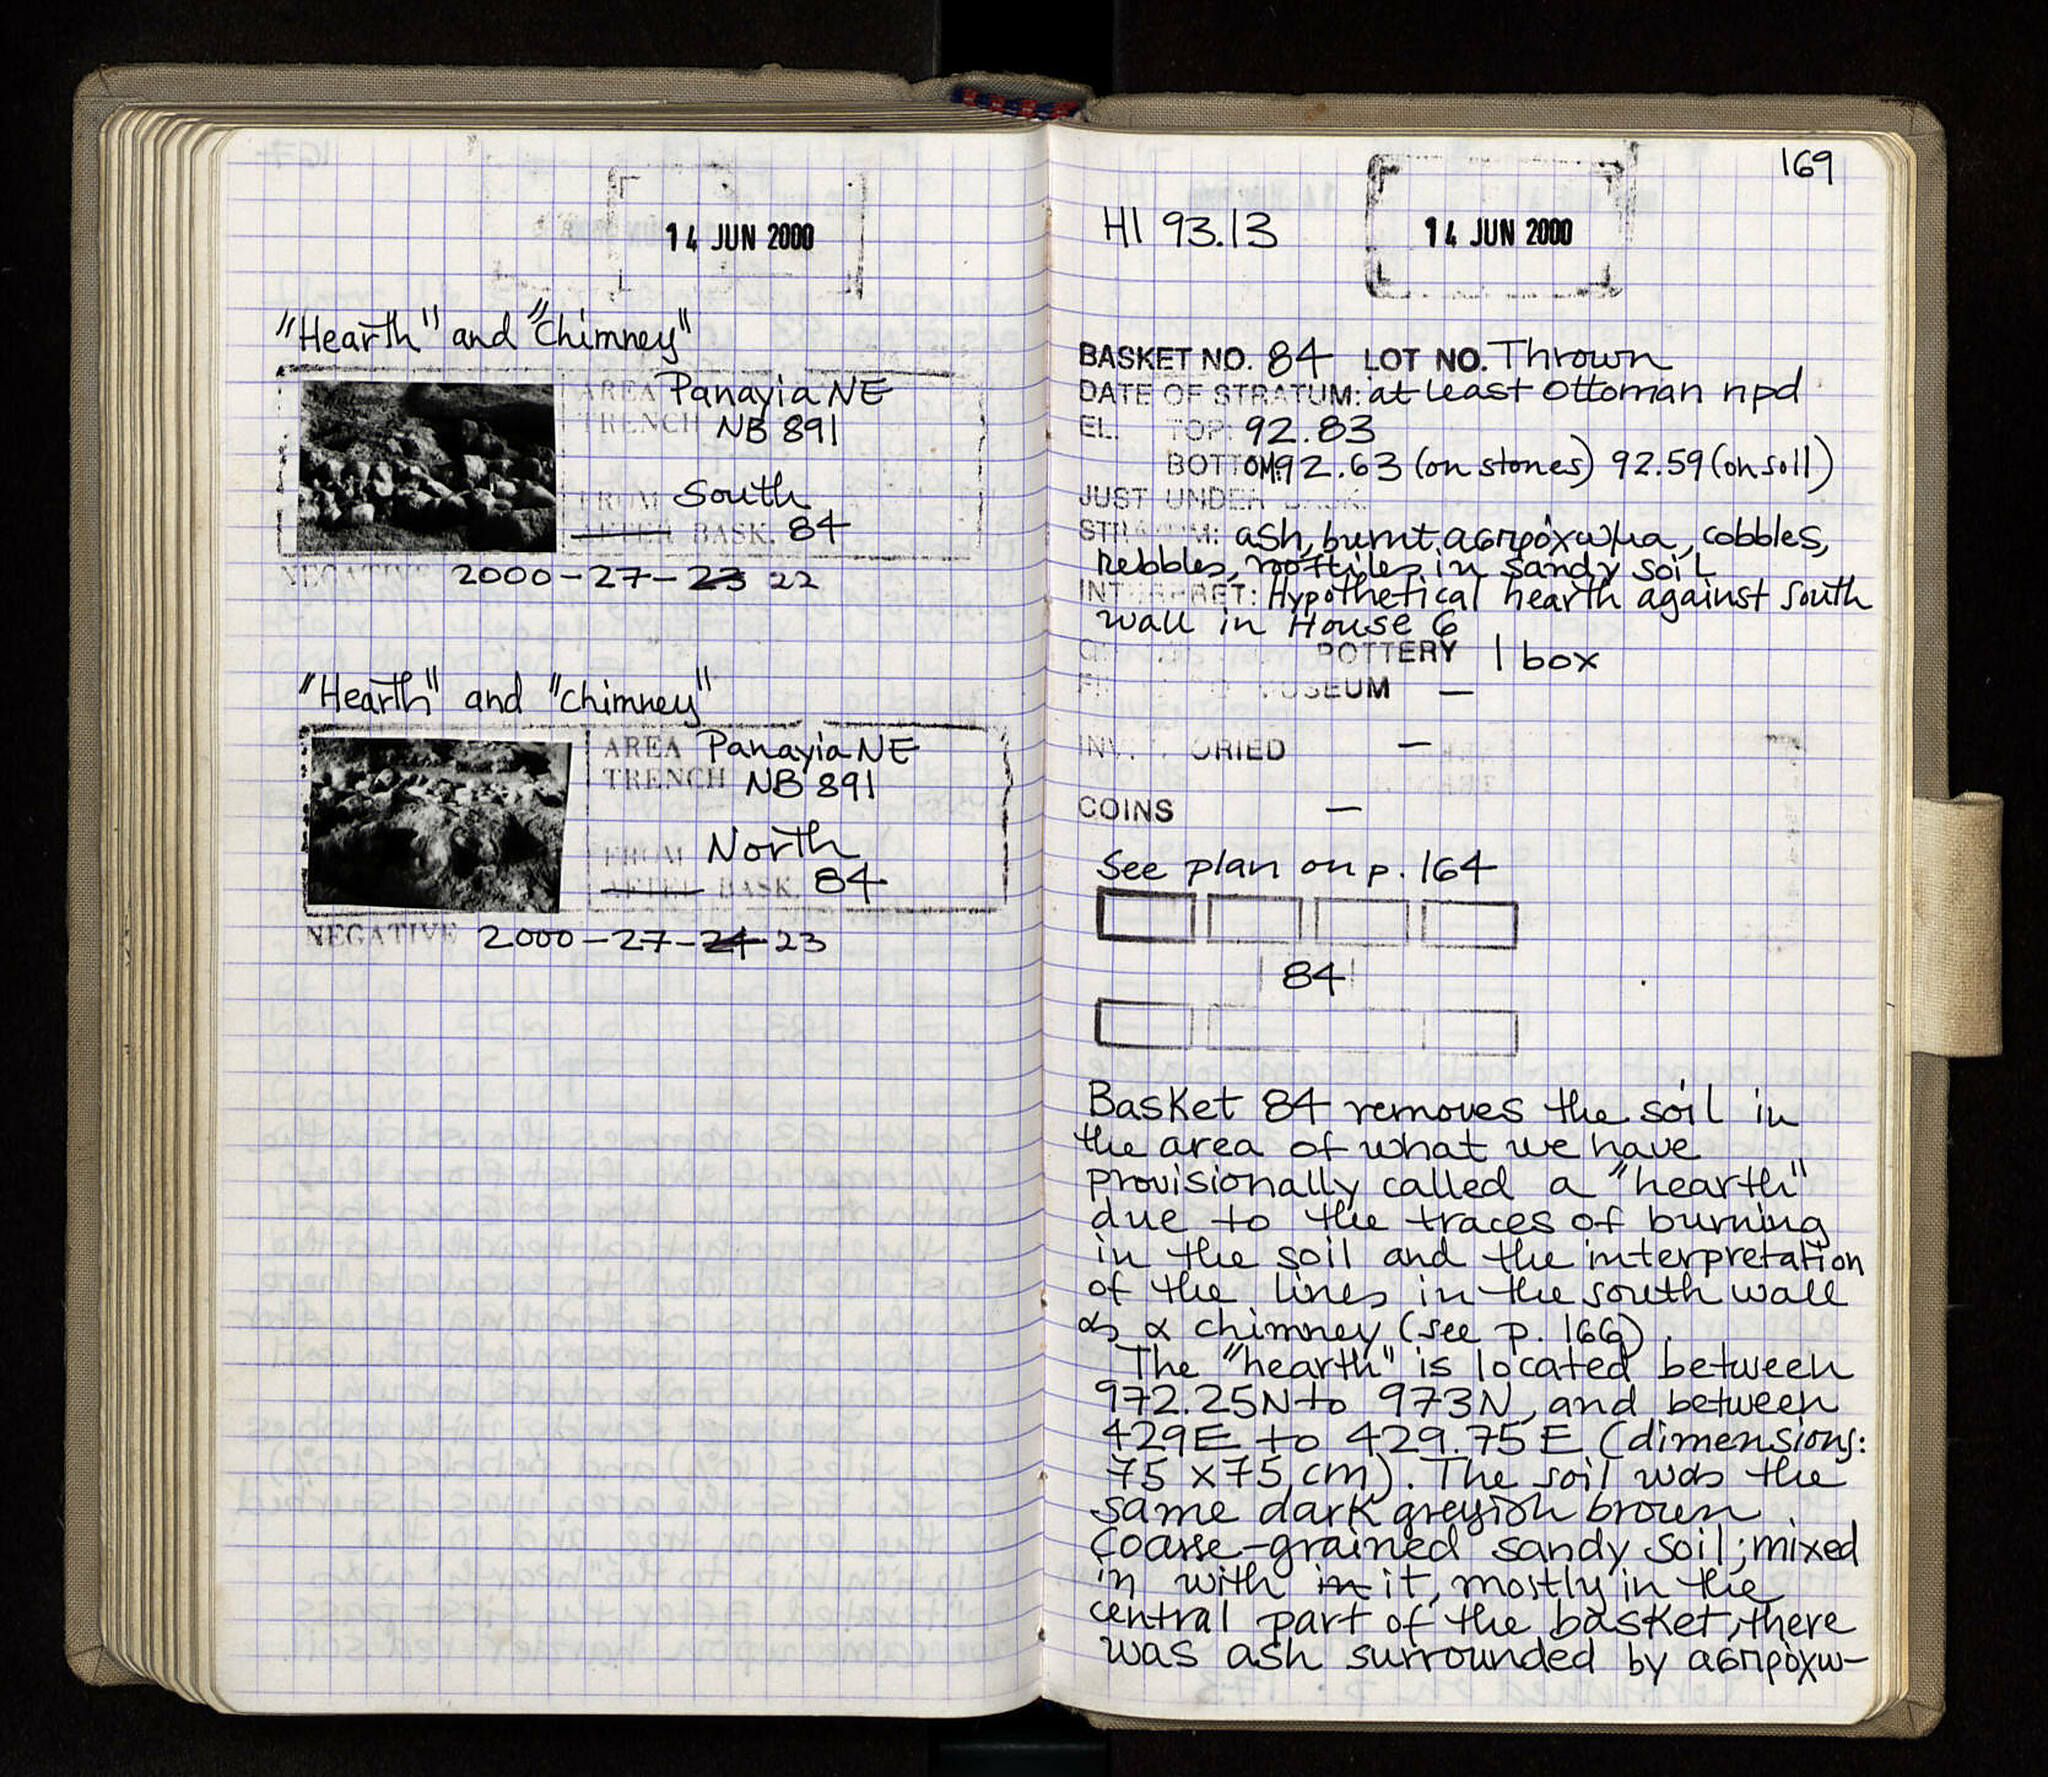 14 JUN 2000
"Hearth" and "Chimney"
AREA Panayia NE
TRENCH NB 891
FROM South
AFTER BASK. 84
NEGATIVE 2000-27-23 22
"Hearth" and "Chimney"
AREA Panayia NE
TRENCH NB 891
FROM North
AFTER BASK. 84
NEGATIVE 2000-27-24 23
169
HI 93.13
14 JUN 2000
BASKET NO. 84 LOT NO. Thrown
DATE OF STRATUM: at least Ottoman npd
EL. TOP: 92.83
BOTTOM: 92.63 (on stones) 92.59 (on soil)
JUST UNDER BASK.
STRATUM: ash, burnt ασπρόχωμα, cobbles,
pebbles, rooftiles in sandy soil
INTERPRET: Hypothetical hearth against south
wall in House 6
POTTERY 1 box
MUSEUM —
INVENTORIED —
COINS —
See plan on p. 164
84
Basket 84 removes the soil in
the area of what we have
provisionally called a "hearth"
due to the traces of burning
in the soil and the interpretation
of the lines in the south wall
as a chimney (see p. 166).
The "hearth" is located between
972.25N to 973N, and between
429E to 429.75E (dimensions:
75 x 75 cm). The soil was the
same dark greyish brown
coarse-grained sandy soil; mixed
in with in it, mostly in the
central part of the basket, there
was ash surrounded by ασπρόχω-